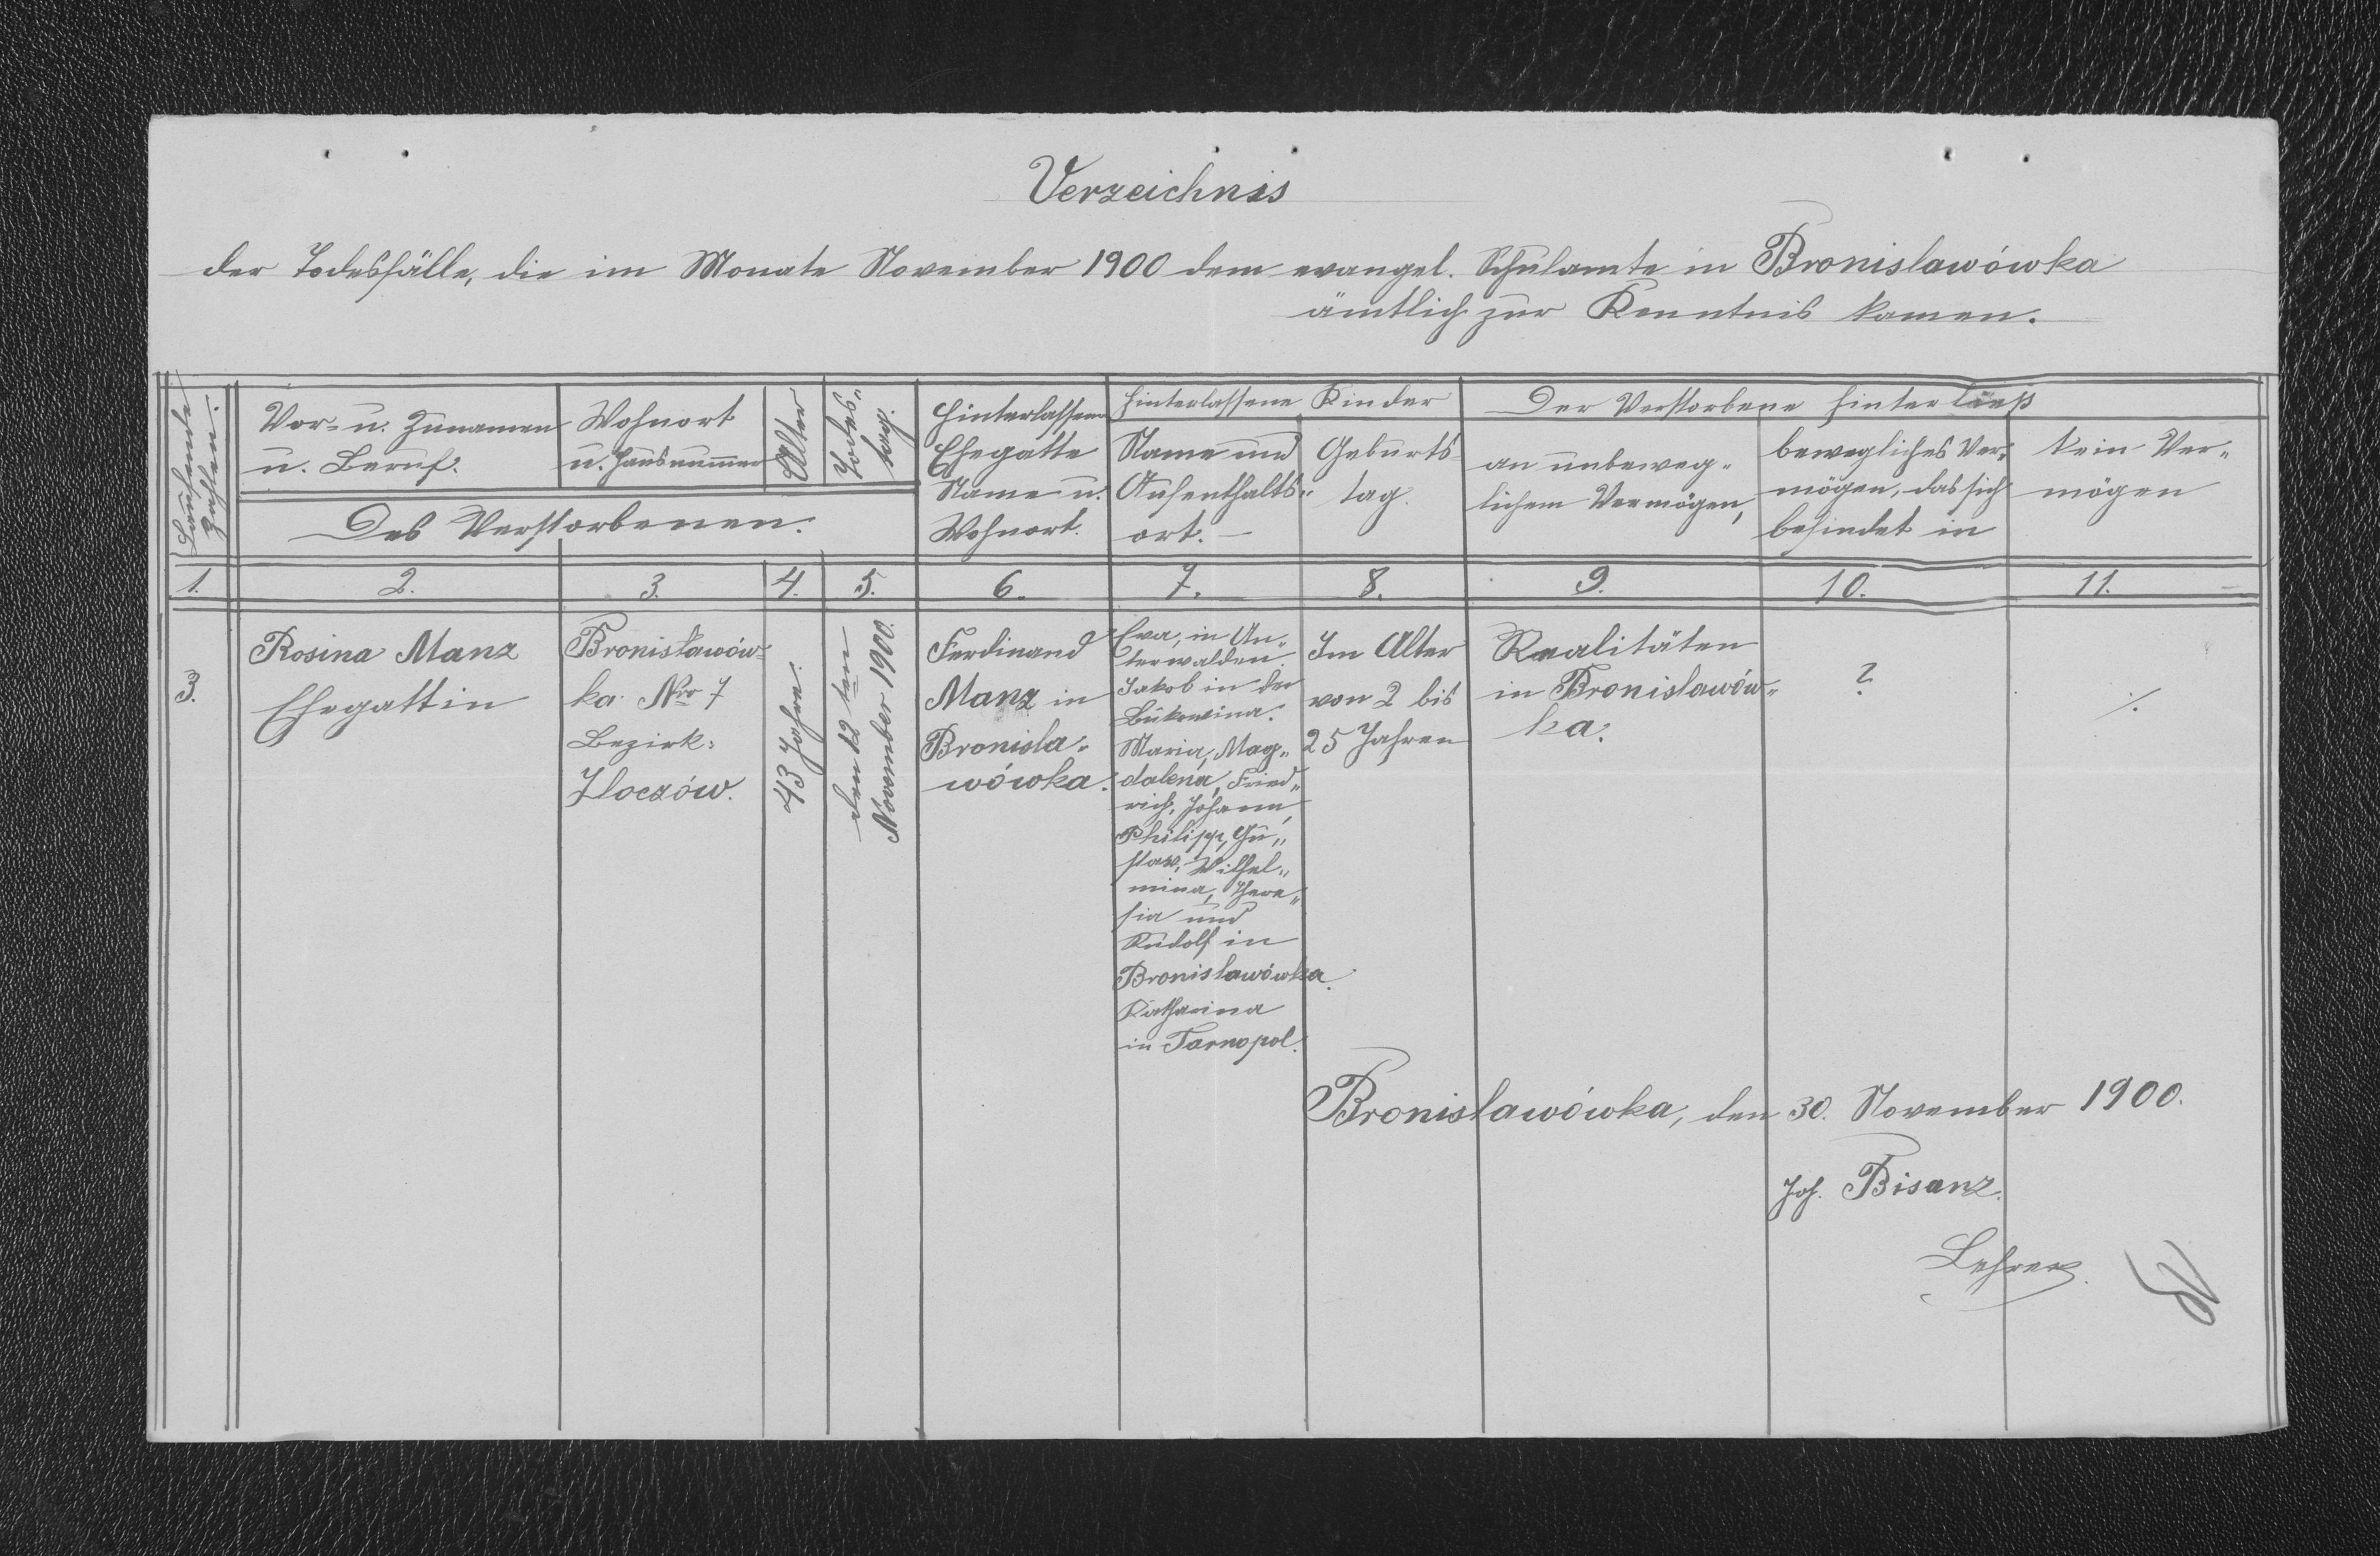 Verzeichnis
der Todesfälle, die im Monate November 1900 dem evangel. Schulamte in Bronislawówka
ämtlich zur Kenntnis kamen.
Laufende
Zahlen.
Vor- u. Zunamen
u. Beruf.
Wohnort
u. Hausnummer
Alter
Todes-
tag.
Des Verstorbenen.
Hinterlassener
Ehegatte
Name u.
Wohnort.
Hinterlassene Kinder
Name und
Aufenthalts-
ort. –
Geburts-
tag.
Der Verstorbene hinterliess
an unbeweg-
lichem Vermögen,
bewegliches Ver-
mögen, das sich
befindet in
kein Ver-
mögen
1. 2. 3. 4. 5. 6. 7. 8. 9. 10. 11.
3.
Rosina Manz
Ehegattin
Bronisławów-
ka Nro 7
Bezirk:
Złoczów.
43 Jahre.
den 12ten
November 1900.
Ferdinand
Manz in
Bronisla-
wówka.
Eva, in Un-
terwalden.
Jakob in der
Bukowina.
Maria, Mag-
dalena, Fried-
rich, Johann,
Philipp, Gu-
stav, Wilhel-
mina, There-
sia und
Rudolf in
Bronislawówka.
Katharina
in Tarnopol.
Im Alter
von 2 bis
25 Jahren
Realitäten
in Bronislawów-
ka.
?
./.
Bronislawówka, den 30. November 1900.
Joh. Bisanz.
Lehrer.